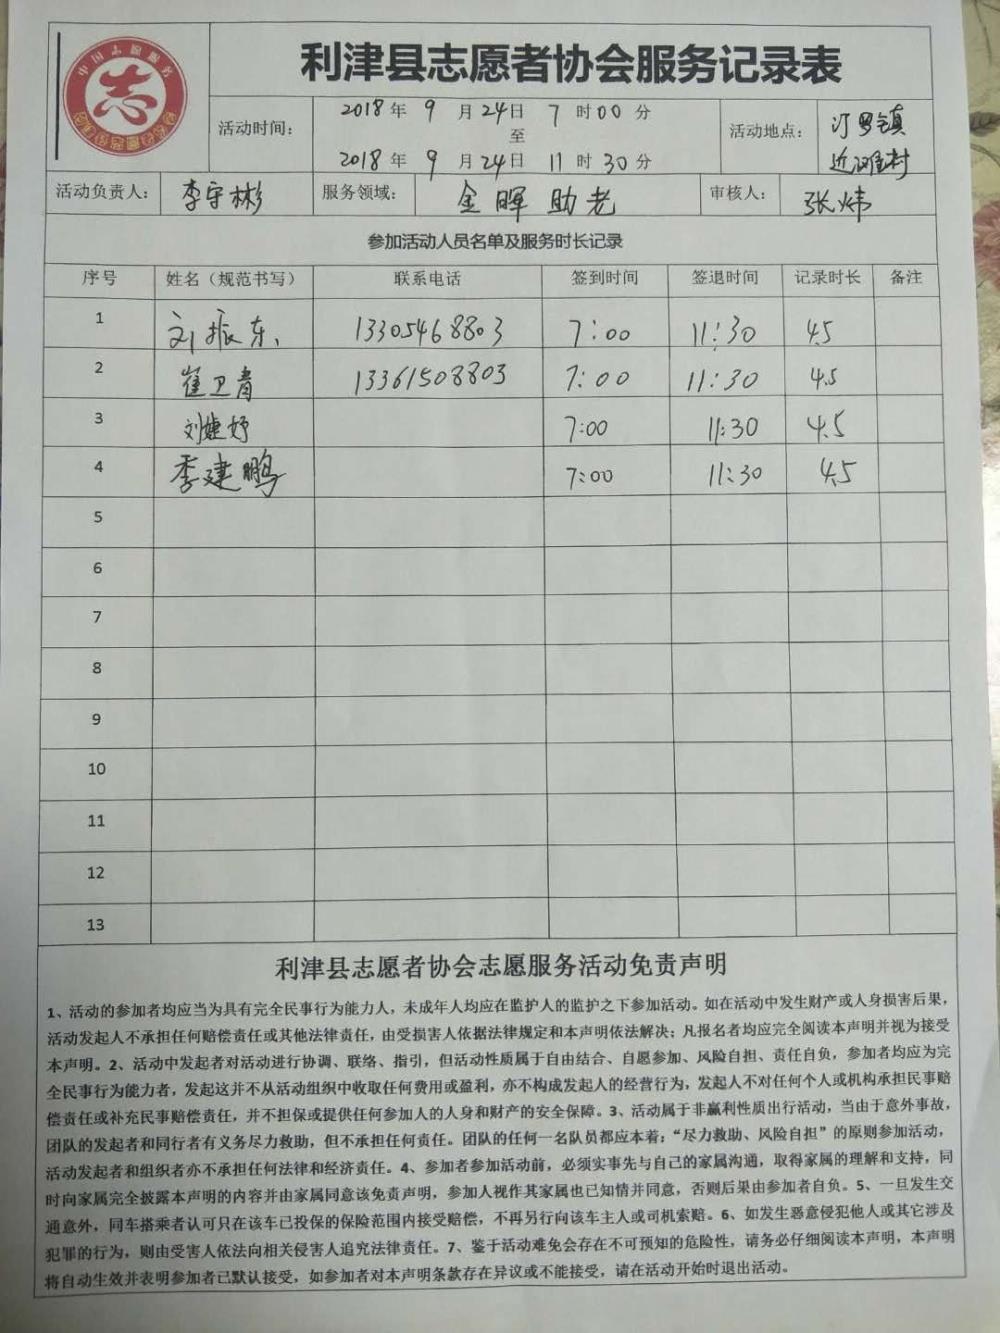 中国志愿服务
志
利津县志愿者协会服务记录表
活动时间：
2018年 9 月 24日 7 时00 分
至
2018 年 9 月 24日 11 时 30 分
活动地点：
汀罗镇
近滩村
活动负责人：
李守彬
服务领域：
金晖助老
审核人：
张炜
参加活动人员名单及服务时长记录
序号 姓名（规范书写） 联系电话 签到时间 签退时间 记录时长 备注
1 刘振东 13305468803 7:00 11:30 4.5
2 崔卫青 13361508803 7:00 11:30 4.5
3 刘婕妤 7:00 11:30 4.5
4 李建鹏 7:00 11:30 4.5
5
6
7
8
9
10
11
12
13
利津县志愿者协会志愿服务活动免责声明
1、活动的参加者均应当为具有完全民事行为能力人，未成年人均应在监护人的监护之下参加活动。如在活动中发生财产或人身损害后果，
活动发起人不承担任何赔偿责任或其他法律责任，由受损害人依据法律规定和本声明依法解决；凡报名者均应完全阅读本声明并视为接受
本声明。2、活动中发起者对活动进行协调、联络、指引，但活动性质属于自由结合、自愿参加、风险自担、责任自负，参加者均应为完
全民事行为能力者，发起这并不从活动组织中收取任何费用或盈利，亦不构成发起人的经营行为，发起人不对任何个人或机构承担民事赔
偿责任或补充民事赔偿责任，并不担保或提供任何参加人的人身和财产的安全保障。3、活动属于非赢利性质出行活动，当由于意外事故，
团队的发起者和同行者有义务尽力救助，但不承担任何责任。团队的任何一名队员都应本着：“尽力救助、风险自担”的原则参加活动，
活动发起者和组织者亦不承担任何法律和经济责任。4、参加者参加活动前，必须实事先与自己的家属沟通，取得家属的理解和支持，同
时向家属完全披露本声明的内容并由家属同意该免责声明，参加人视作其家属也已知情并同意，否则后果由参加者自负。5、一旦发生交
通意外，同车搭乘者认可只在该车已投保的保险范围内接受赔偿，不再另行向该车主人或司机索赔。6、如发生恶意侵犯他人或其它涉及
犯罪的行为，则由受害人依法向相关侵害人追究法律责任。7、鉴于活动难免会存在不可预知的危险性，请务必仔细阅读本声明，本声明
将自动生效并表明参加者已默认接受，如参加者对本声明条款存在异议或不能接受，请在活动开始时退出活动。